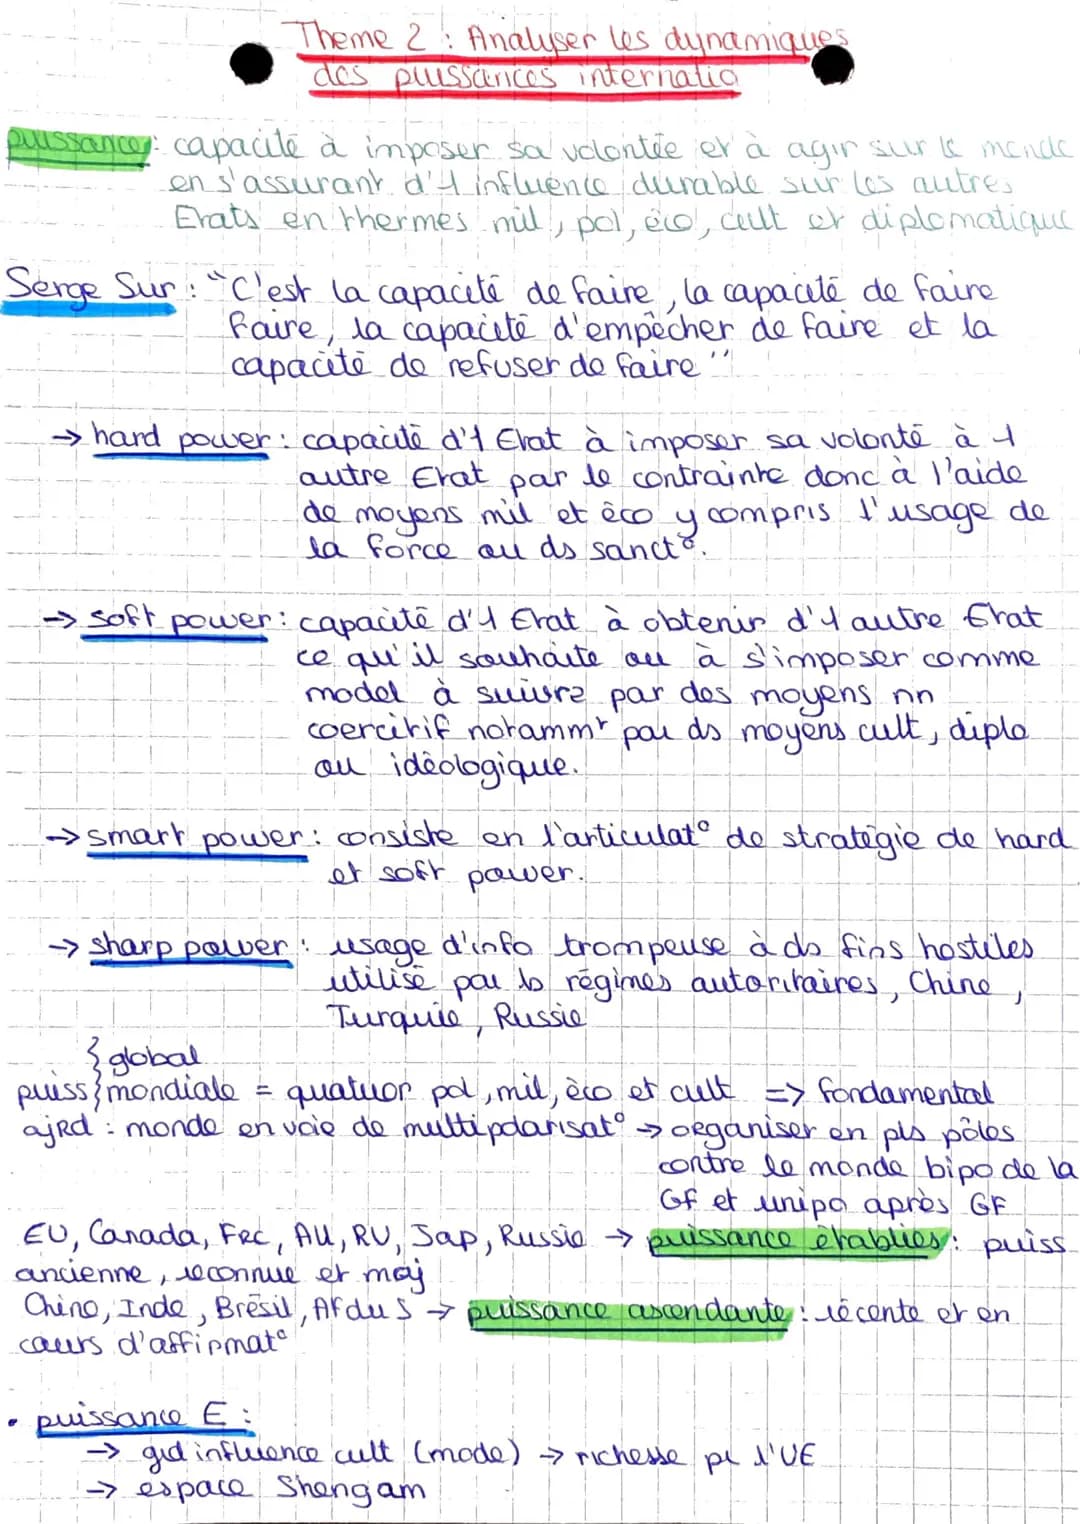 Theme 2 : Analyser les dynamiques
des puissances internatio
puissance : capacité à imposer sa volontée et à agir sur le monde
en s'assurant d'1 influence durable sur les autres
Etats en thermes mil, pol, éco, cult et diplomatique
Serge Sur : "C'est la capacité de faire, la capacité de faire
faire, la capacité d'empêcher de faire et la
capacité de refuser de faire"
→ hard power : capacité d'1 Etat à imposer sa volonté à 1
autre Etat par le contrainte donc à l'aide
de moyens mil et éco y compris l'usage de
la force ou ds sanct°.
→ soft power : capacité d'1 Etat à obtenir d'1 autre Etat
ce qu'il souhaite ou à s'imposer comme
model à suivre par des moyens nn
coercitif notammt par ds moyens cult, diplo
ou idéologique.
→ smart power : consiste en l'articulat° de stratégie de hard
et soft power.
→ sharp power : usage d'info trompeuse à ds fins hostiles
utilisé par ls régimes autoritaires, Chine,
Turquie, Russie
} global
puiss } mondiale = quatuor pol, mil, èco et cult => fondamental
ajRd : monde en voie de multipolarisat° → organiser en pls pôles
contre le monde bipo de la
Gf et unipo après GF
EU, Canada, Frc, All, RU, Jap, Russie → puissance établies : puiss
ancienne, reconnue et maj
Chine, Inde, Brésil, Af du S → puissance ascendante : récente et en
cours d'affirmat°
• puissance E :
→ grd influence cult (mode) → richesse pr l'UE
→ espace Shengam